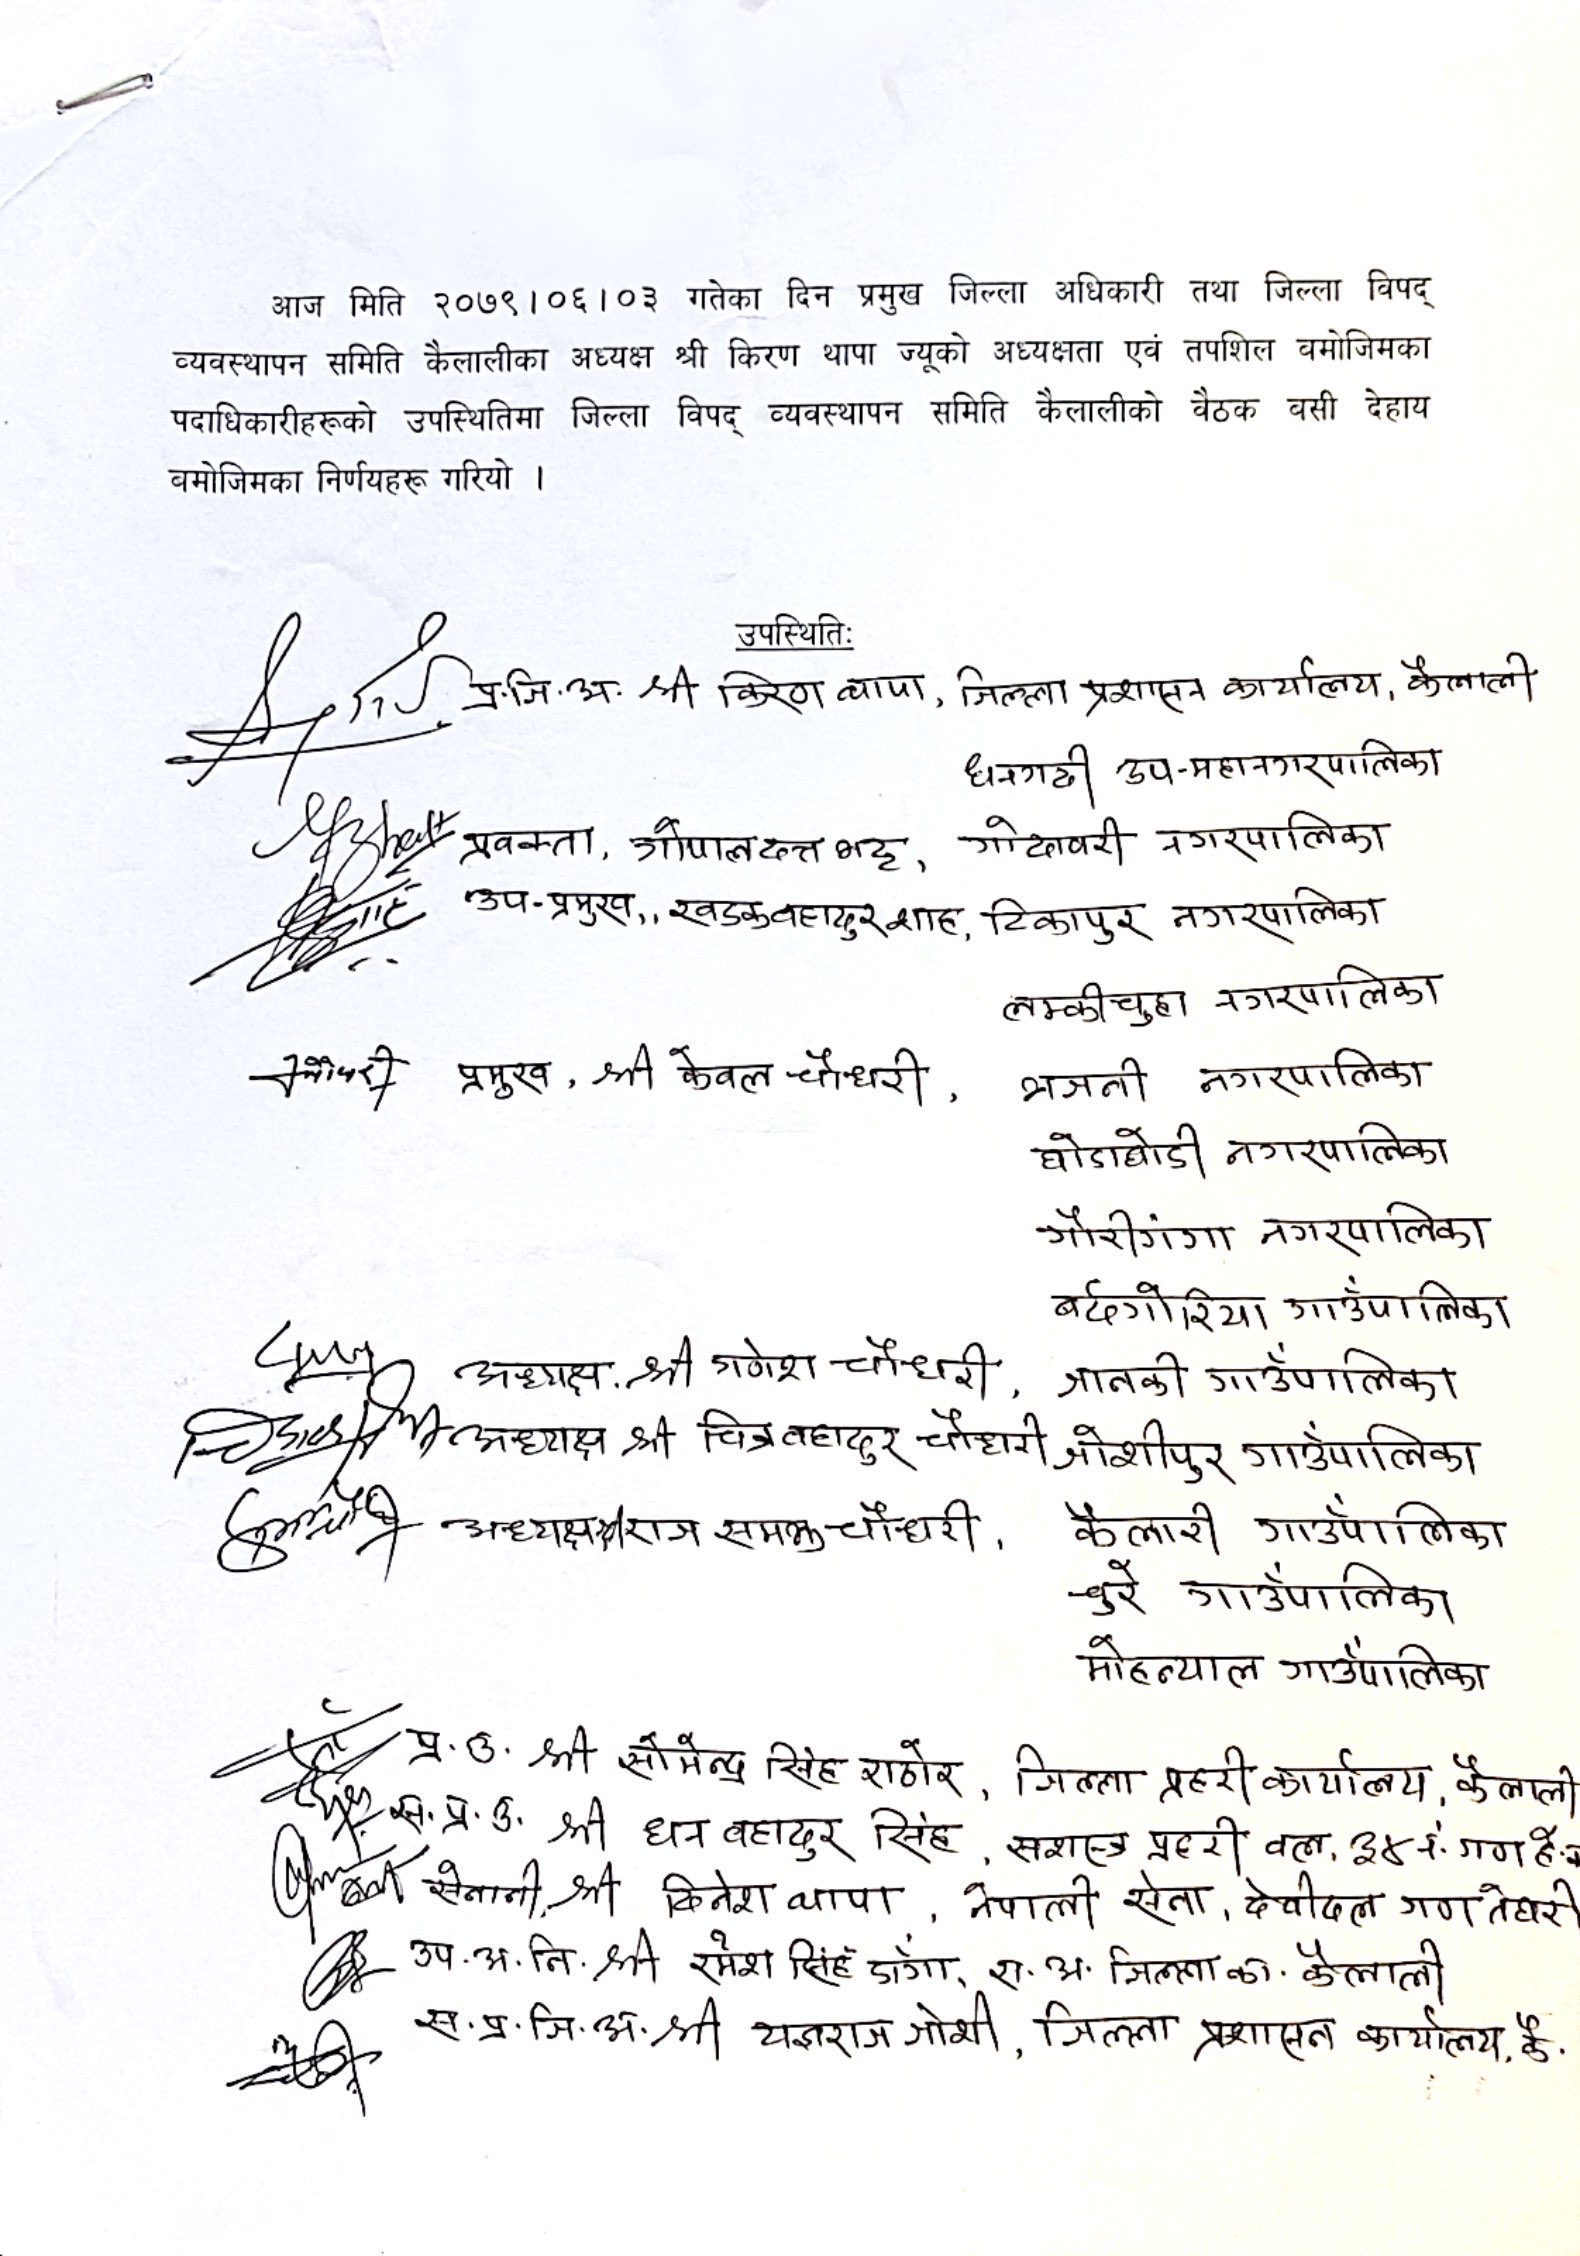 आज मिति २०७९।०६।०३ गतेका दिन प्रमुख जिल्ला अधिकारी तथा जिल्ला विपद्
व्यवस्थापन समिति कैलालीका अध्यक्ष श्री किरण थापा ज्यूको अध्यक्षता एवं तपशिल वमोजिमका
पदाधिकारीहरूको उपस्थितिमा जिल्ला विपद् व्यवस्थापन समिति कैलालीको वैठक वसी देहाय
वमोजिमका निर्णयहरू गरियो ।
उपस्थितिः
प्र.जि.अ. श्री किरण थापा, जिल्ला प्रशासन कार्यालय, कैलाली
धनगढी उप-महानगरपालिका
प्रवक्ता, गोपालदत्त भट्ट, गोदावरी नगरपालिका
उप-प्रमुख,, खडकवहादुर शाह, टिकापुर नगरपालिका
लम्कीचुहा नगरपालिका
प्रमुख, श्री केवल चौधरी, भजनी नगरपालिका
घोडाघोडी नगरपालिका
गौरीगंगा नगरपालिका
बर्दगोरिया गाउँपालिका
अध्यक्ष. श्री गणेश चौधरी, जानकी गाउँपालिका
अध्यक्ष श्री चित्रवहादुर चौधरी जोशीपुर गाउँपालिका
अध्यक्ष राज समझ चौधरी, कैलारी गाउँपालिका
चुरे गाउँपालिका
मोहन्याल गाउँपालिका
प्र.उ. श्री सोमेन्द्र सिंह राठौर, जिल्ला प्रहरी कार्यालय, कैलाली
स.प्र.उ. श्री धन वहादुर सिंह, सशस्त्र प्रहरी वल, ३४ नं. गण हे.
सेनानी, श्री किनेश थापा, नेपाली सेना, देवीदल गण तेघरी
उप.अ.नि. श्री रमेश सिंह डाँगा, रा.अ. जिल्ला का. कैलाली
स.प्र.जि.अ. श्री यज्ञराज जोशी, जिल्ला प्रशासन कार्यालय, कै.